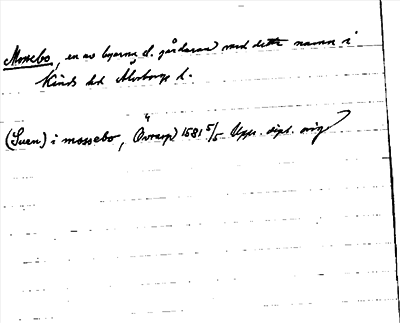 Mossebo, en av byarna el. gårdarna med detta namn i
Kinds hd Älvsborgs l.
(Suen) i mossebo, 1581 5/5 Upps. dipl. orig